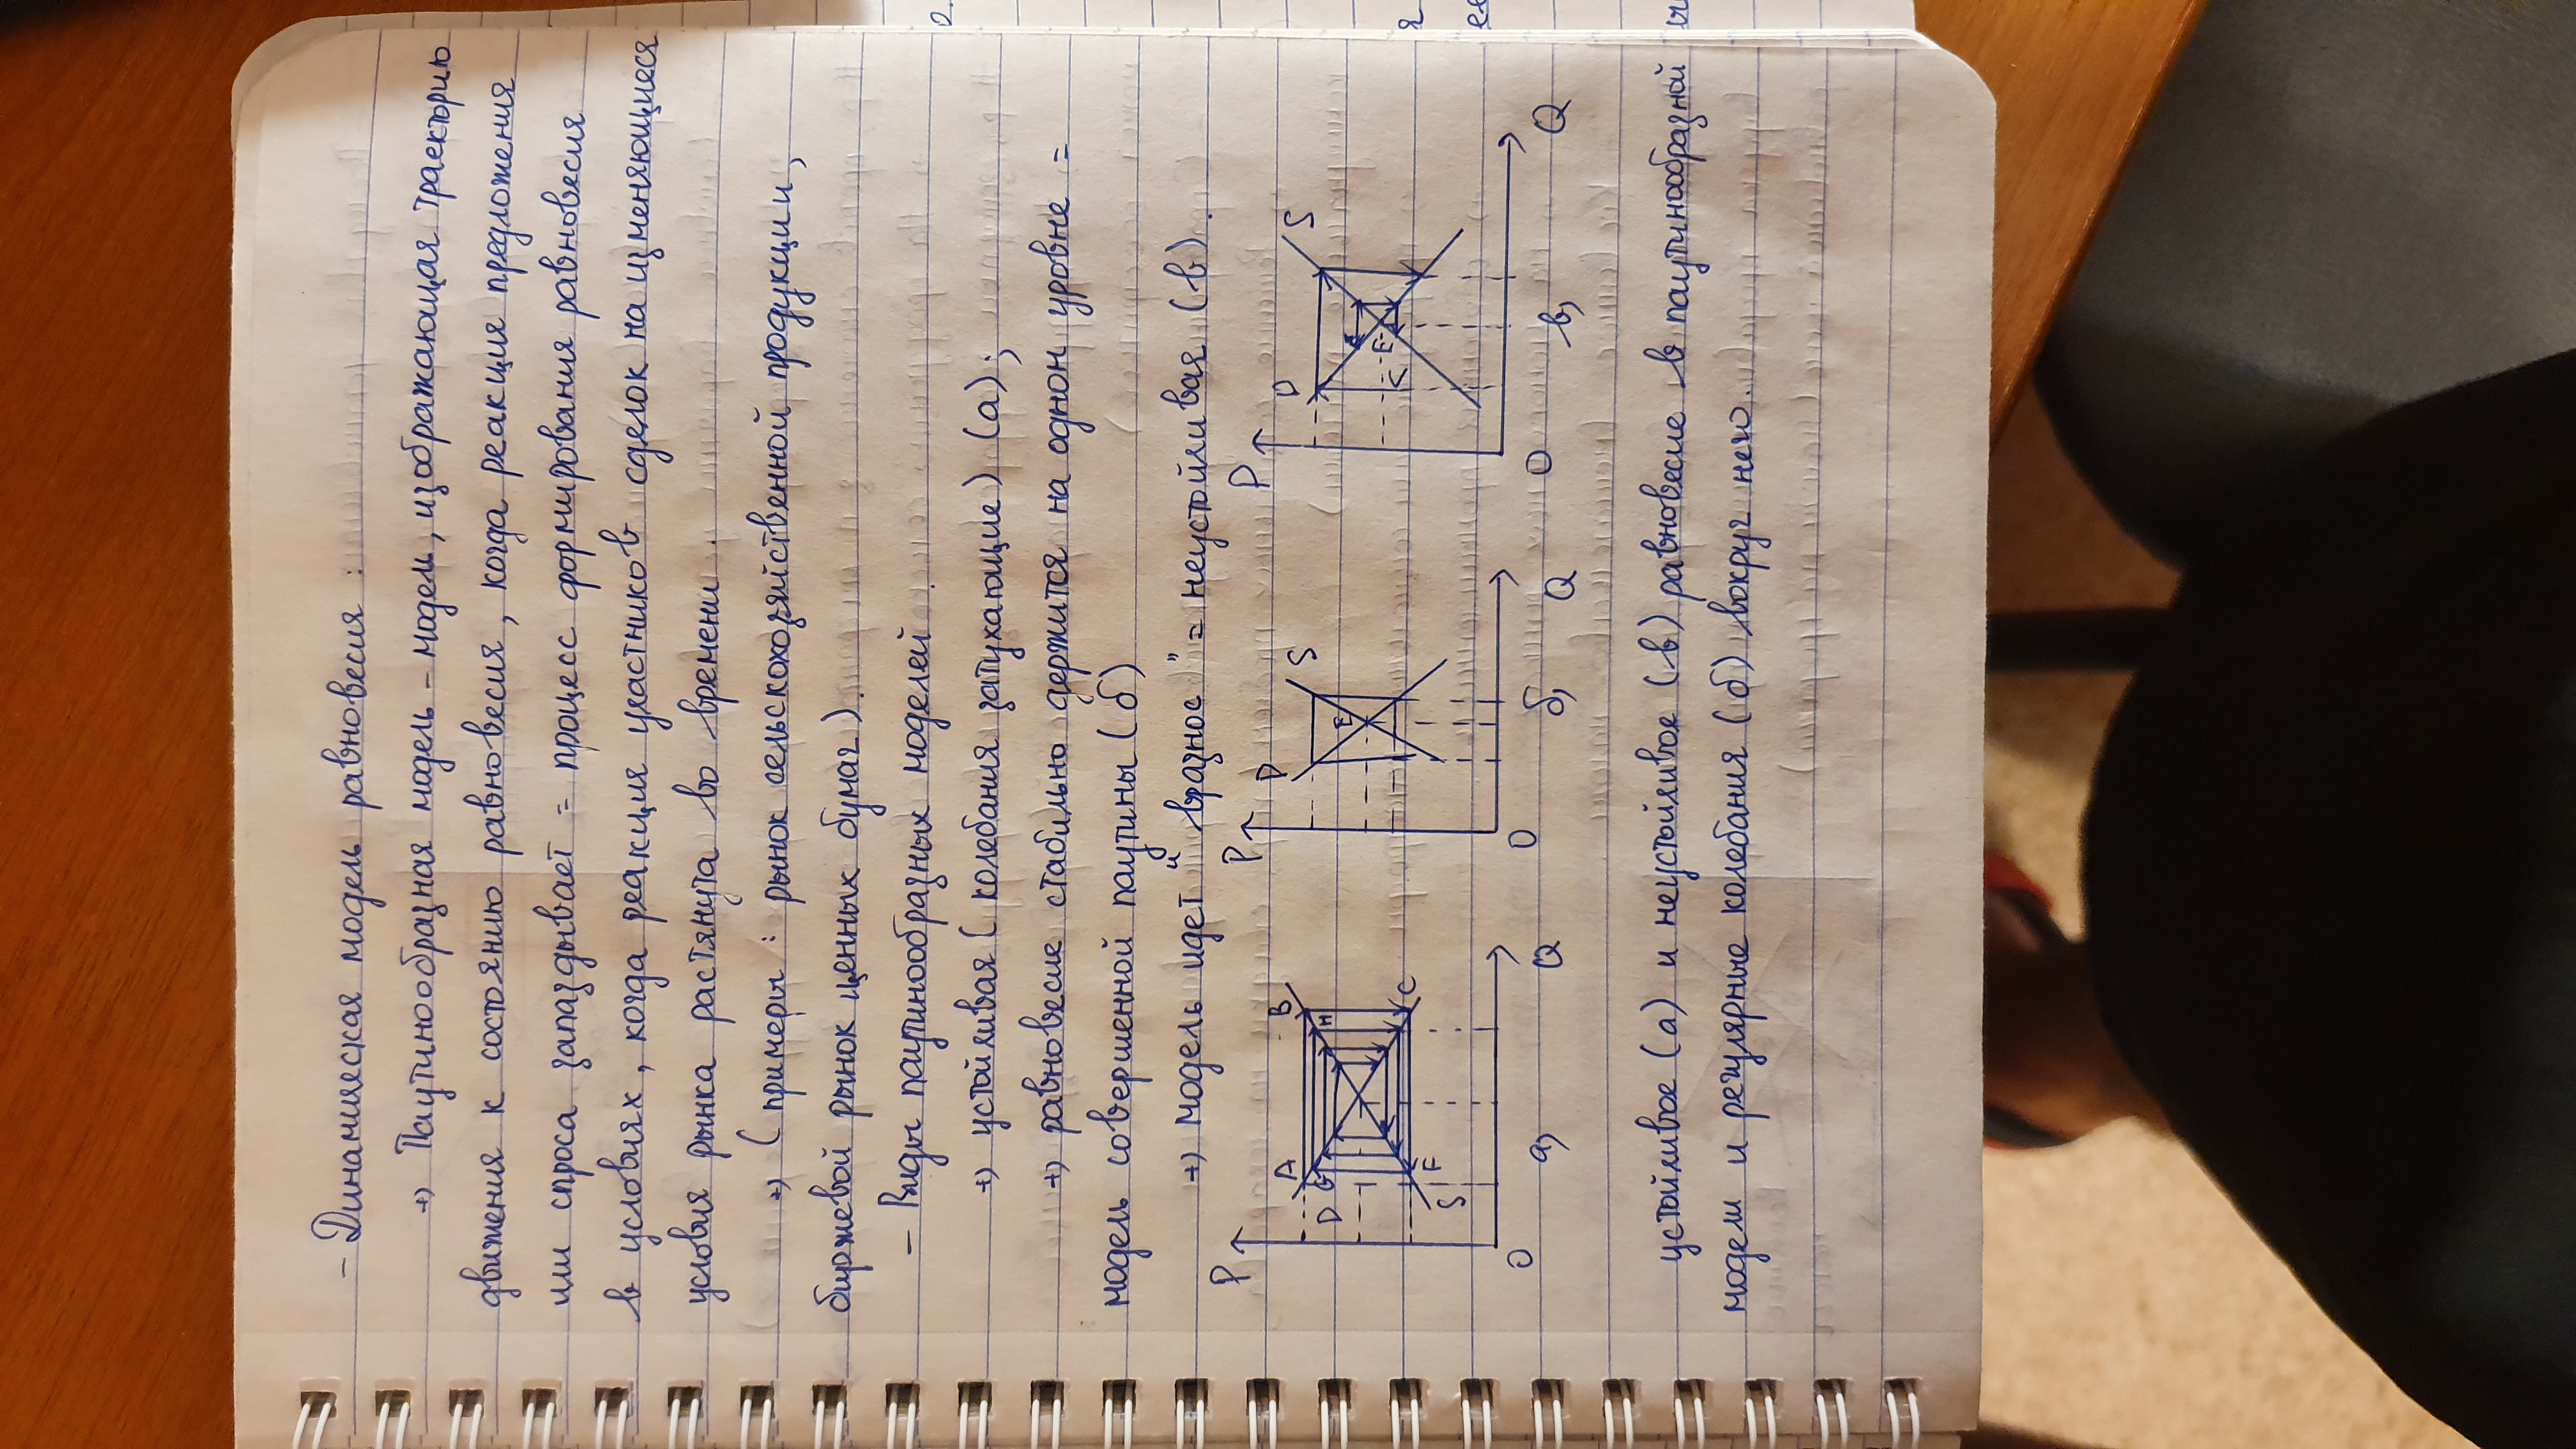 - Динамическая модель равновесия :
→ Паутинообразная модель - модель, изображающая траекторию
движения к состоянию равновесия, когда реакция предложения
или спроса запаздывает = процесс формирования равновесия
в условиях, когда реакция участников сделок на изменяющиеся
условия рынка растянута во времени.
→ (примеры : рынок сельскохозяйственной продукции,
биржевой рынок ценных бумаг).
- Виды паутинообразных моделей.
→ устойчивая ( колебания затухающие) (а);
→ равновесие стабильно держится на одном уровне =
модель совершенной паутины (б)
→ модель идет "вразнос" = неустойчивая (в).
P A B D G H C S F O а) Q
P D S E O б) Q
P D S E C O в) Q
устойчивое (а) и неустойчивое (в) равновесие в паутинообразной
модели и регулярные колебания (б) вокруг него.